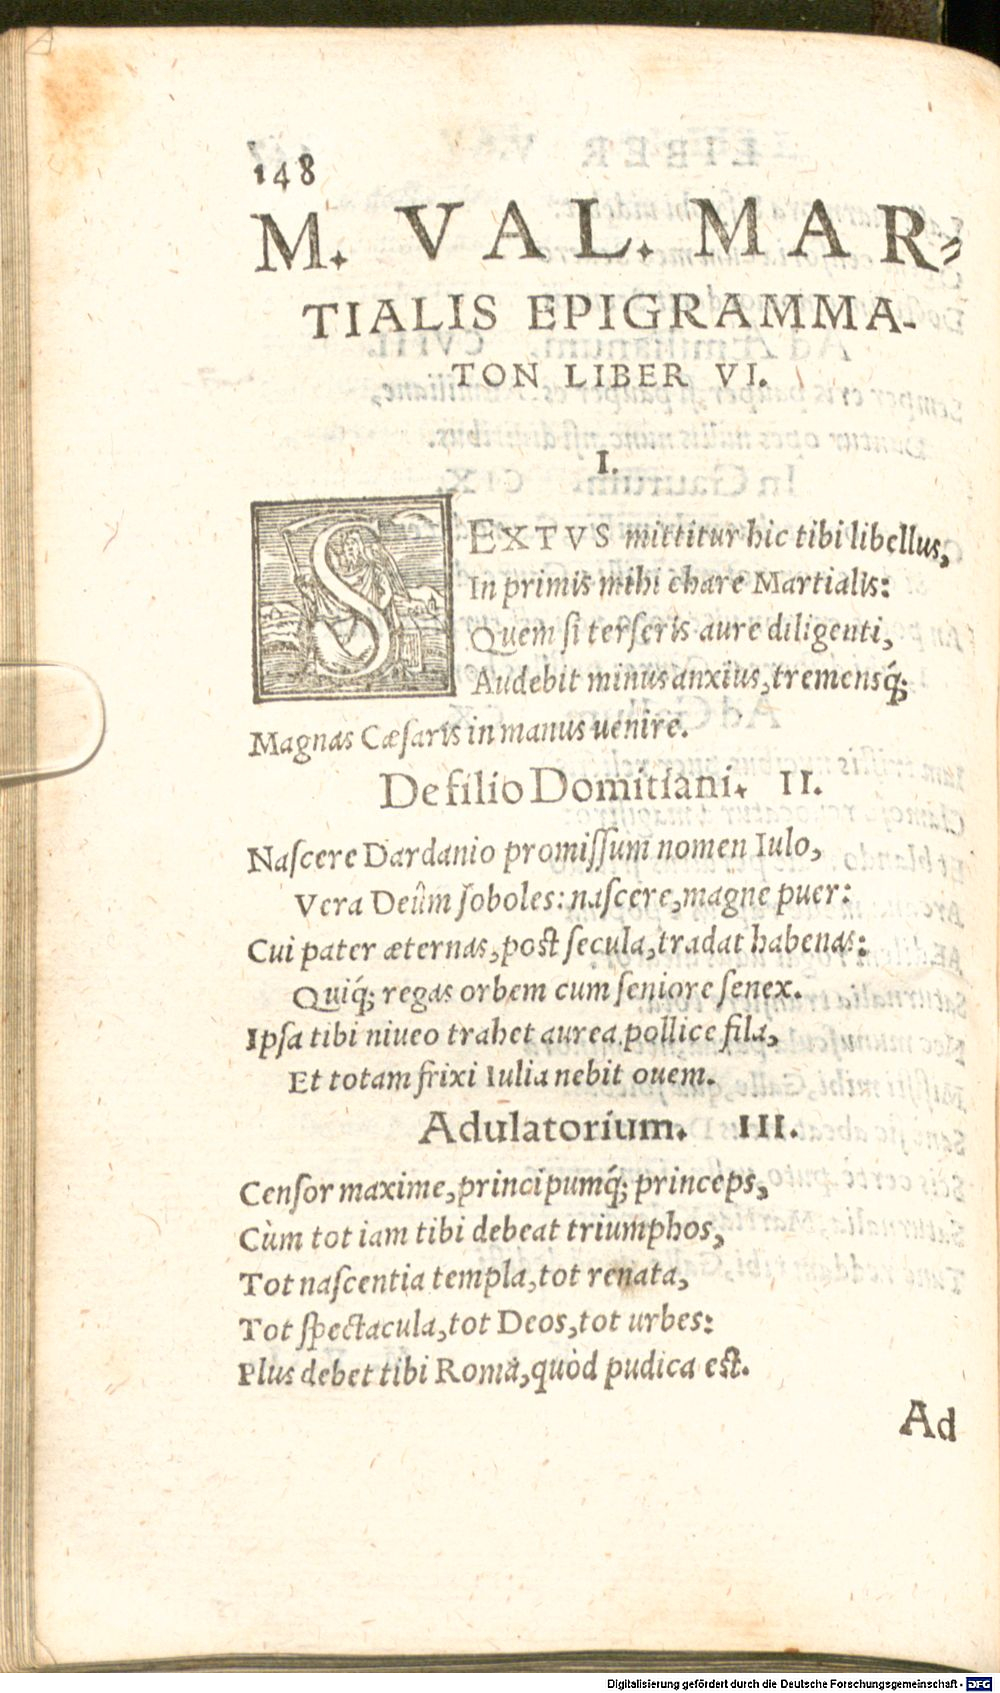 148
M. VAL. MAR-
TIALIS EPIGRAMMA-
TON LIBER VI.
I.
SEXTVS mittitur hic tibi libellus,
In primis mihi chare Martialis:
Quem si terseris aure diligenti,
Audebit minus anxius, tremensq́;
Magnas Cæsaris in manus uenire.
De filio Domitiani. II.
Nascere Dardanio promissum nomen Iulo,
Vera Deûm soboles: nascere, magne puer:
Cui pater æternas, post secula, tradat habenas:
Quiq́; regas orbem cum seniore senex.
Ipsa tibi niueo trahet aurea pollice fila,
Et totam frixi Iulia nebit ouem.
Adulatorium. III.
Censor maxime, principumq́; princeps,
Cùm tot iam tibi debeat triumphos,
Tot nascentia templa, tot renata,
Tot spectacula, tot Deos, tot urbes:
Plus debet tibi Roma, quòd pudica est.
Ad
Digitalisierung gefördert durch die Deutsche Forschungsgemeinschaft - DFG